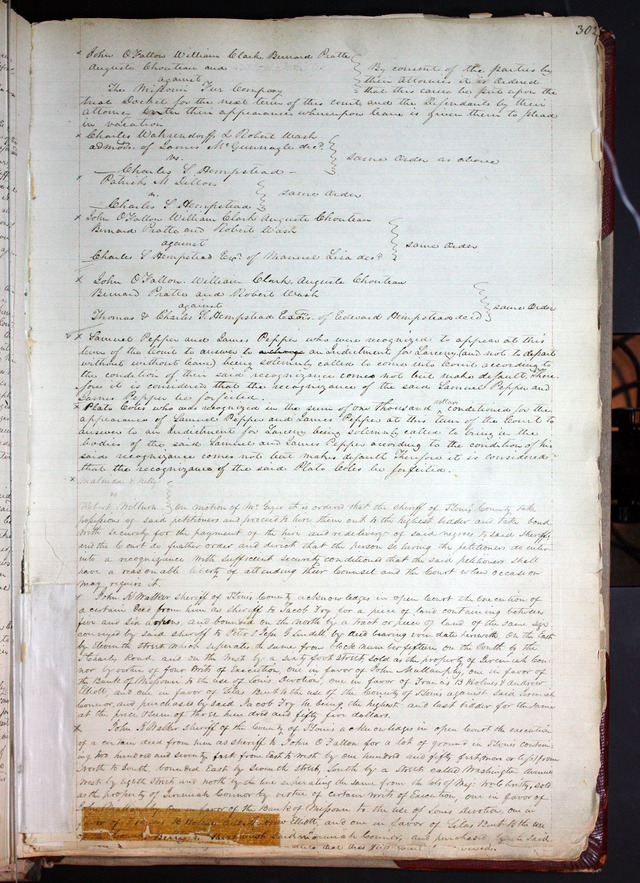 302
John O'Fallon William Clark Bernard Pratte
Auguste Chouteau and
against
The Missouri Fur Company
By consent of the parties by
their attornies it is ordered
that this cause be put upon the
trial Docket for the next term of this court and the Defendants by their
Attorney enter their appearances whereupon leave is given them to plead
in vacation
Charles Wahrendorff & Robert Wash
admors. of James McGunnagle decd.
vs.
Charles S Hempstead
same order as above
Patrick M Dillon
vs
Charles S Hempstead
same order
John O'Fallon William Clark Auguste Chouteau
Bernard Pratte and Robert Wash
against
Charles S Hempstead of Manuel Lisa decd.
same order
John O'Fallon William Clark Auguste Chouteau
Bernard Pratte and Robert Wash
against
Thomas & Charles S. Hempstead Exors. of Edward Hempstead decd
same order
Samuel Pepper and James Pepper who were recognized to appear at this
term of the Court to answer to an indictment for Larceny and not to depart
without without leave, being solemnly called to come into Court according to
the condition of their said recognizance comes not but make default. There
fore it is considered that the recognizance of the said Samuel Pepper and
James Pepper be forfeited.
Plato Coles who was recognized in the sum of one thousand dollars conditioned for the
appearance of Samuel Pepper and James Pepper at this term of the Court to
answer to an Indictment for Larceny being solemnly called to bring in the
bodies of the said Samuel and James Pepper according to the condition of his
said recognizance comes not but makes default Therefore it is considered
that the recognizance of the said Plato Coles be forfeited.
Malinda & Nelly
vs
Robert Wilburn
On motion of Mr Geyer it is ordered that the sheriff of St Louis County take
possession of said petitioners and proceed to hire them out to the highest bidder and take bond
with security for the payment of the hire and redelivery of said negroes to said Sheriff,
and the Court do further order and direct that the person so hiring the petitioners do enter
into a recognizance with sufficient security conditioned that the said petitioners shall
have a reasonable liberty of attending their Counsel and the Court when occasion
may require it.
John K Walker sheriff of St Louis County acknowledges in open Court the execution of
a certain Deed from him as sheriff to Jacob Fry for a piece of land containing between
five and six arpens, and bounded on the north by a tract or piece of land of the same size
conveyed by said sheriff to Peter & Jesse G Lindell by deed bearing even date herewith On the East
by Eleventh Street which seperates the same from block number fifteen on the South by the
St Charles Road and on the West by a sixty foot Street, sold as the property of Jeremiah Con-
nor by virtue of four Writs of Execution, one in favor of John Mullanphy, one in favor of
the Bank of Missouri to the use of Louis Devotion, one in favor of Francis B Holmes & Andrew
Elliott, and one in favor of Silas Bent to the use of the County of St Louis against said Jeremiah
Connor, and purchased by said Jacob Fry he being the highest and last bidder for the same
at the price & sum of three hundred and fifty five dollars.
John K Walker Sheriff of the County of St Louis acknowledges in open Court the execution
of a certain deed from him as sheriff to John O'Fallon for a lot of ground in St Louis contain-
ing two hundred and seventy feet from East to West by one hundred and fifty feet, more or less from
North to South, bounded East by Seventh Street, South by a Street called Washington Avenue
West by Eighth Street and north by the line seperating the same from the lot of sold
as the property of Jeremiah Connor by virtue of certain writs of Execution, one in favor of
the Bank of Missouri to the use of Louis Devotion, one in
favor of Elliott, and one in favor of Silas Bent to the use
said Jeremiah Connor, and purchased by the said